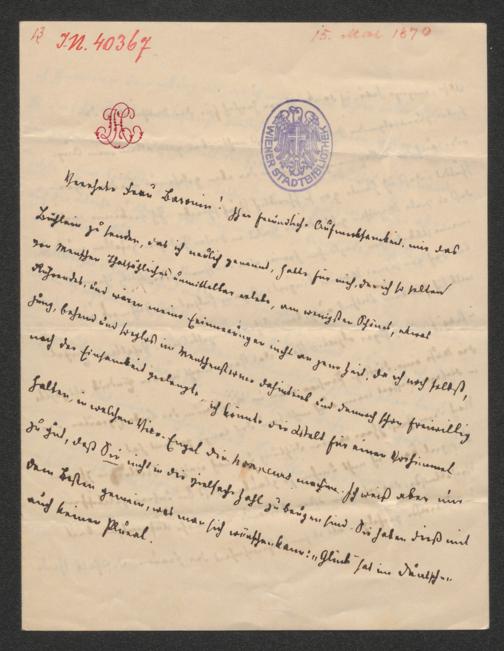 13
I.N. 40367
15. Mai 1870
WIENER STADTBIBLIOTHEK
Verehrte Frau Baronin! Ihre freundliche Aufmerksamkeit, mir das
Büchlein zu senden, das ich neulich genannt, hatte für mich, der ich so selten
von Menschen Thatsächliches unmittelbar erlebe, am wenigsten Schönes, etwas
Rührendes, und wären meine Erinnerungen nicht an jene Zeit, da ich noch selbst,
jung, lebend und sorglos im Menschenstrome dahintrieb und dennoch schon freiwillig
nach der Einsamkeit verlangte, ich könnte die Welt für einen
halten, in welchem Engel die machen. Ich weiß aber nur
zu gut, daß Sie nicht in die vielfache Zahl zu beugen sind. Sie haben dieß mit
dem Besten gemein, was man sich wünschen kann: „Glück" hat im Deutschen
auch keinen Plural.